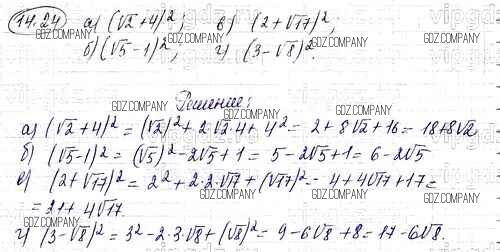 14.24 а) (√2+4)²; в) (2+√17)²;
GDZ.COMPANY GDZ.COMPANY
б) (√5-1)²; г) (3-√8)².
GDZ.COMPANY GDZ.COMPANY
Решение:
GDZ.COMPANY
а) (√2+4)² = (√2)²+2√2·4+4² = 2+8√2+16 = 18+8√2
б) (√5-1)² = (√5)²-2√5+1 = 5-2√5+1 = 6-2√5
в) (2+√17)² = 2²+2·2·√17+(√17)² = 4+4√17+17 =
= 21+4√17.
г) (3-√8)² = 3²-2·3·√8+(√8)² = 9-6√8+8 = 17-6√8.